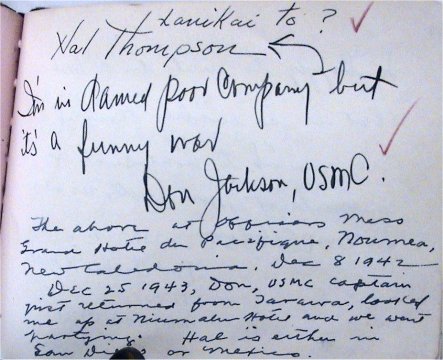 Lanikai to ?
Hal Thompson
I'm in damed poor Company but
it's a funny war
Don Jackson, USMC.
The above at officers mess
Grand Hotie du Pacifique, Noumea,
New Caledonia. Dec 8 1942
Dec 25 1943, Don, USMC captain
just returned from Tarawa, looked
me up at Niumalu Hotie and we went
partying. Hal is either in
San Diego or Mexico.